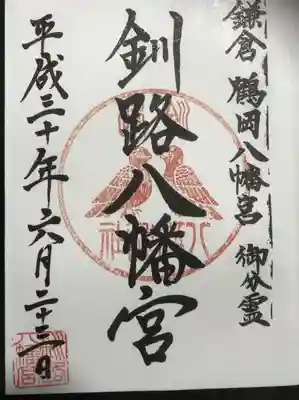 鎌倉 鶴岡八幡宮 御分霊
釧路八幡宮
平成三十年六月二十三日